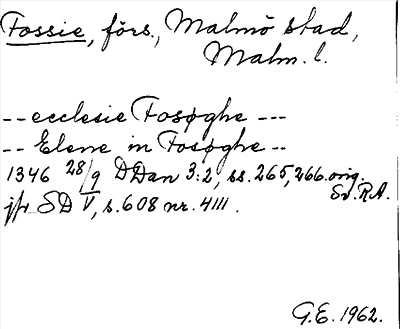 Fossie, förs., Malmö stad,
Malm. l.
-- ecclesie Fosøghe ---
-- Elene in Fosøghe --
1346 28/9 DDan 3:2, ss. 265, 266. orig.
Sv. R.A.
jfr SD V, s. 608 nr. 4111.
G.E. 1962.